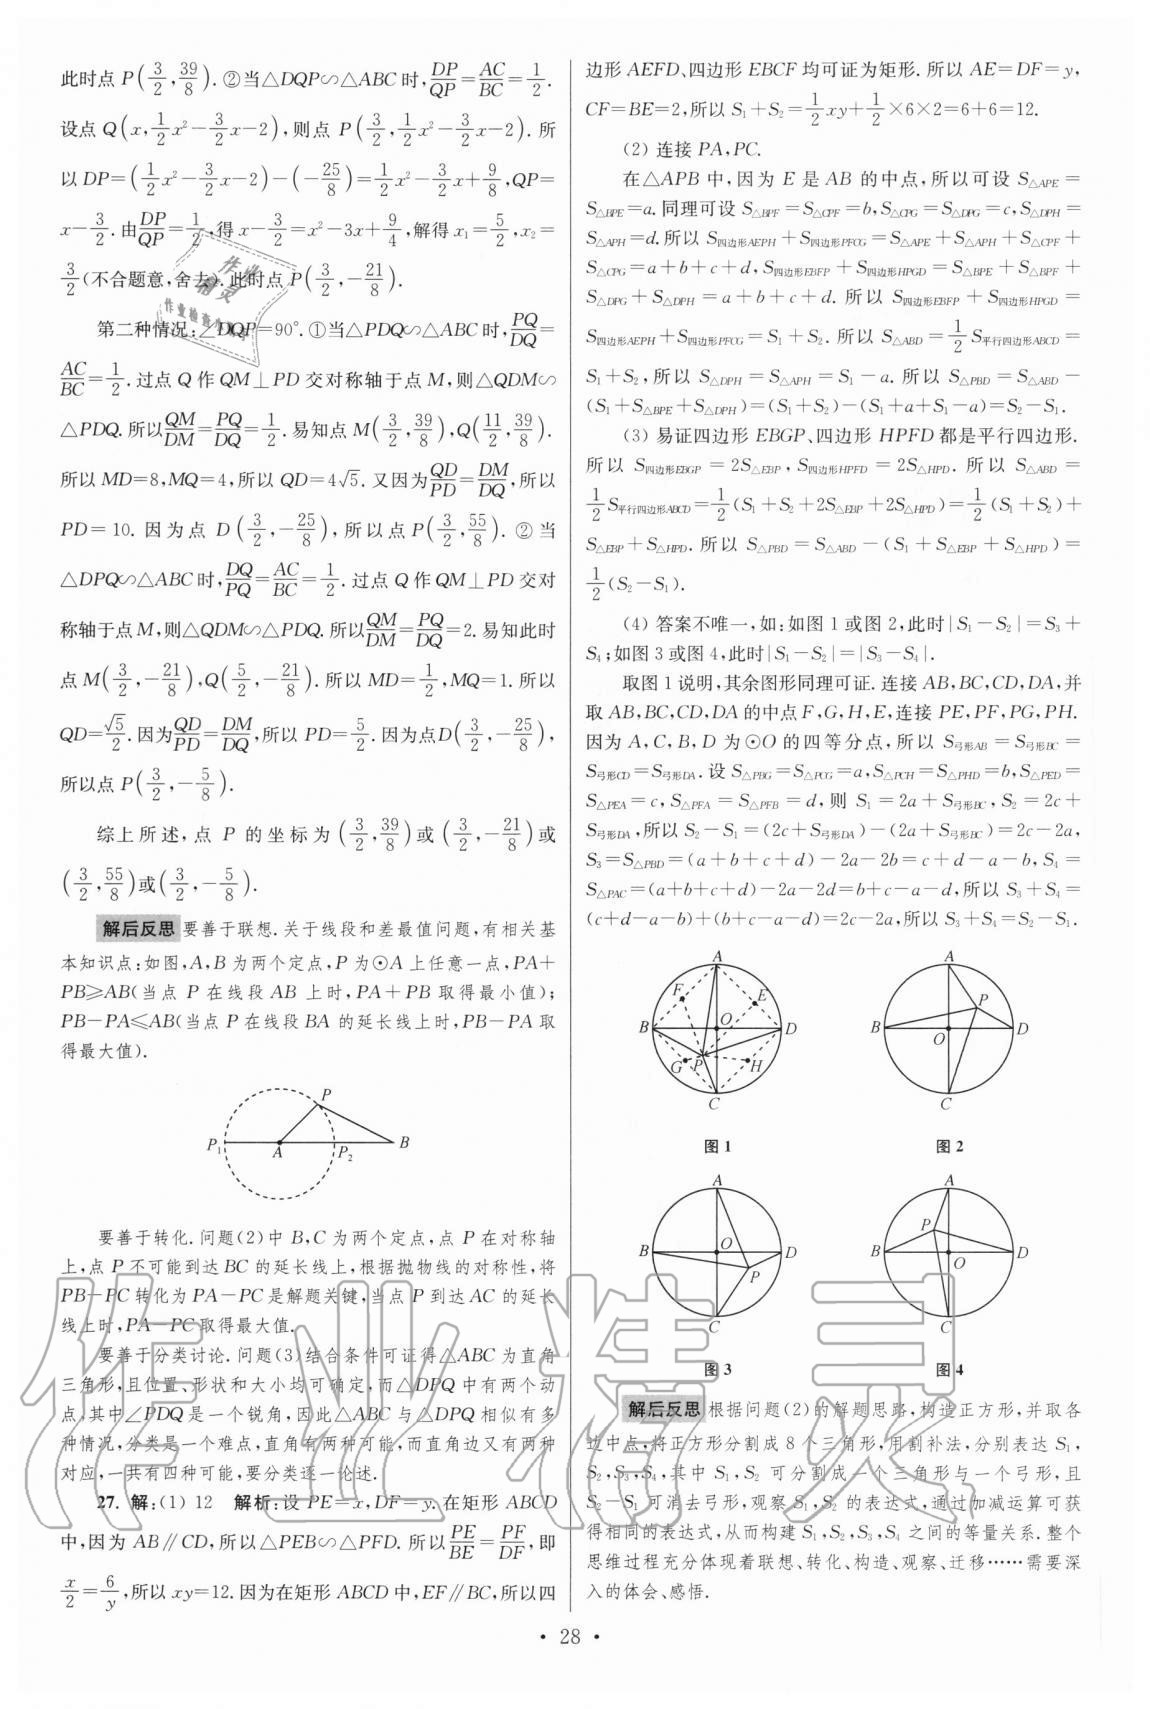 此时点 P(3/2,39/8).②当△DQP∽△ABC时,DP/QP=AC/BC=1/2.
设点 Q(x,1/2x²-3/2x-2),则点 P(3/2,1/2x²-3/2x-2).所
以 DP=(1/2x²-3/2x-2)-(-25/8)=1/2x²-3/2x+9/8,QP=
x-3/2.由DP/QP=1/2,得 x-3/2=x²-3x+9/4,解得 x₁=5/2,x₂=
3/2(不合题意,舍去).此时点 P(3/2,-21/8).
第二种情况:∠DQP=90°.①当△PDQ∽△ABC时,PQ/DQ=
AC/BC=1/2.过点 Q 作 QM⊥PD 交对称轴于点 M,则△QDM∽
△PDQ.所以QM/DM=PQ/DQ=1/2.易知点 M(3/2,39/8),Q(11/2,39/8).
所以 MD=8,MQ=4,所以 QD=4√5.又因为QD/PD=DM/DQ,所以
PD=10.因为点 D(3/2,-25/8),所以点 P(3/2,55/8).②当
△DPQ∽△ABC时,DQ/PQ=AC/BC=1/2.过点 Q 作 QM⊥PD 交对
称轴于点 M,则△QDM∽△PDQ.所以QM/DM=PQ/DQ=2.易知此时
点 M(3/2,-21/8),Q(5/2,-21/8).所以 MD=1/2,MQ=1.所以
QD=√5/2.因为QD/PD=DM/DQ,所以 PD=5/2.因为点D(3/2,-25/8),
所以点 P(3/2,-5/8).
综上所述,点 P 的坐标为(3/2,39/8)或(3/2,-21/8)或
(3/2,55/8)或(3/2,-5/8).
解后反思 要善于联想.关于线段和差最值问题,有相关基
本知识点:如图,A,B 为两个定点,P 为⊙A 上任意一点,PA+
PB≥AB(当点 P 在线段 AB 上时,PA+PB 取得最小值);
PB-PA≤AB(当点 P 在线段 BA 的延长线上时,PB-PA 取
得最大值).
P
P₁ A P₂ B
要善于转化.问题(2)中 B,C 为两个定点,点 P 在对称轴
上,点 P 不可能到达 BC 的延长线上,根据抛物线的对称性,将
PB-PC 转化为 PA-PC 是解题关键,当点 P 到达 AC 的延长
线上时,PA-PC 取得最大值.
要善于分类讨论.问题(3)结合条件可证得△ABC 为直角
三角形,且位置、形状和大小均可确定,而△DPQ 中有两个动
点,其中∠PDQ 是一个锐角,因此△ABC 与△DPQ 相似有多
种情况,分类是一个难点,直角有两种可能,而直角边又有两种
对应,一共有四种可能,要分类逐一论述.
27. 解:(1) 12 解析:设 PE=x,DF=y.在矩形 ABCD
中,因为 AB∥CD,所以△PEB∽△PFD.所以PE/BE=PF/DF,即
x/2=6/y,所以 xy=12.因为在矩形 ABCD 中,EF∥BC,所以四
边形 AEFD、四边形 EBCF 均可证为矩形.所以 AE=DF=y,
CF=BE=2,所以 S₁+S₂=1/2xy+1/2×6×2=6+6=12.
(2) 连接 PA,PC.
在△APB 中,因为 E 是 AB 的中点,所以可设 S△APE=
S△BPE=a.同理可设 S△BPF=S△CPF=b,S△CPG=S△DPG=c,S△DPH=
S△APH=d.所以 S四边形AEPH+S四边形PFCG=S△APE+S△APH+S△CPF+
S△CPG=a+b+c+d,S四边形EBFP+S四边形HPGD=S△BPE+S△BPF+
S△DPG+S△DPH=a+b+c+d.所以 S四边形EBFP+S四边形HPGD=
S四边形AEPH+S四边形PFCG=S₁+S₂.所以 S△ABD=1/2S平行四边形ABCD=
S₁+S₂,所以 S△DPH=S△APH=S₁-a.所以 S△PBD=S△ABD-
(S₁+S△BPE+S△DPH)=(S₁+S₂)-(S₁+a+S₁-a)=S₂-S₁.
(3) 易证四边形 EBGP、四边形 HPFD 都是平行四边形.
所以 S四边形EBGP=2S△EBP,S四边形HPFD=2S△HPD.所以 S△ABD=
1/2S平行四边形ABCD=1/2(S₁+S₂+2S△EBP+2S△HPD)=1/2(S₁+S₂)+
S△EBP+S△HPD.所以 S△PBD=S△ABD-(S₁+S△EBP+S△HPD)=
1/2(S₂-S₁).
(4) 答案不唯一,如:如图 1 或图 2,此时|S₁-S₂|=S₃+
S₄;如图 3 或图 4,此时|S₁-S₂|=|S₃-S₄|.
取图 1 说明,其余图形同理可证.连接 AB,BC,CD,DA,并
取 AB,BC,CD,DA 的中点 F,G,H,E,连接 PE,PF,PG,PH.
因为 A,C,B,D 为⊙O 的四等分点,所以 S弓形AB=S弓形BC=
S弓形CD=S弓形DA.设 S△PBG=S△PCG=a,S△PCH=S△PHD=b,S△PED=
S△PEA=c,S△PFA=S△PFB=d,则 S₁=2a+S弓形BC,S₂=2c+
S弓形DA,所以 S₂-S₁=(2c+S弓形DA)-(2a+S弓形BC)=2c-2a,
S₃=S△PBD=(a+b+c+d)-2a-2b=c+d-a-b,S₄=
S△PAC=(a+b+c+d)-2a-2d=b+c-a-d,所以 S₃+S₄=
(c+d-a-b)+(b+c-a-d)=2c-2a,所以 S₃+S₄=S₂-S₁.
A F E B O D G P H C
图 1
A P B O D C
图 2
A O B D P C
图 3
A P B D O C
图 4
解后反思 根据问题(2)的解题思路,构造正方形,并取各
边中点,将正方形分割成 8 个三角形,用割补法,分别表达 S₁,
S₂,S₃,S₄,其中 S₁,S₂ 可分割成一个三角形与一个弓形,且
S₂-S₁ 可消去弓形,观察 S₁,S₂ 的表达式,通过加减运算可获
得相同的表达式,从而构建 S₁,S₂,S₃,S₄ 之间的等量关系.整个
思维过程充分体现着联想、转化、构造、观察、迁移……需要深
入的体会、感悟.
• 28 •
作业精灵